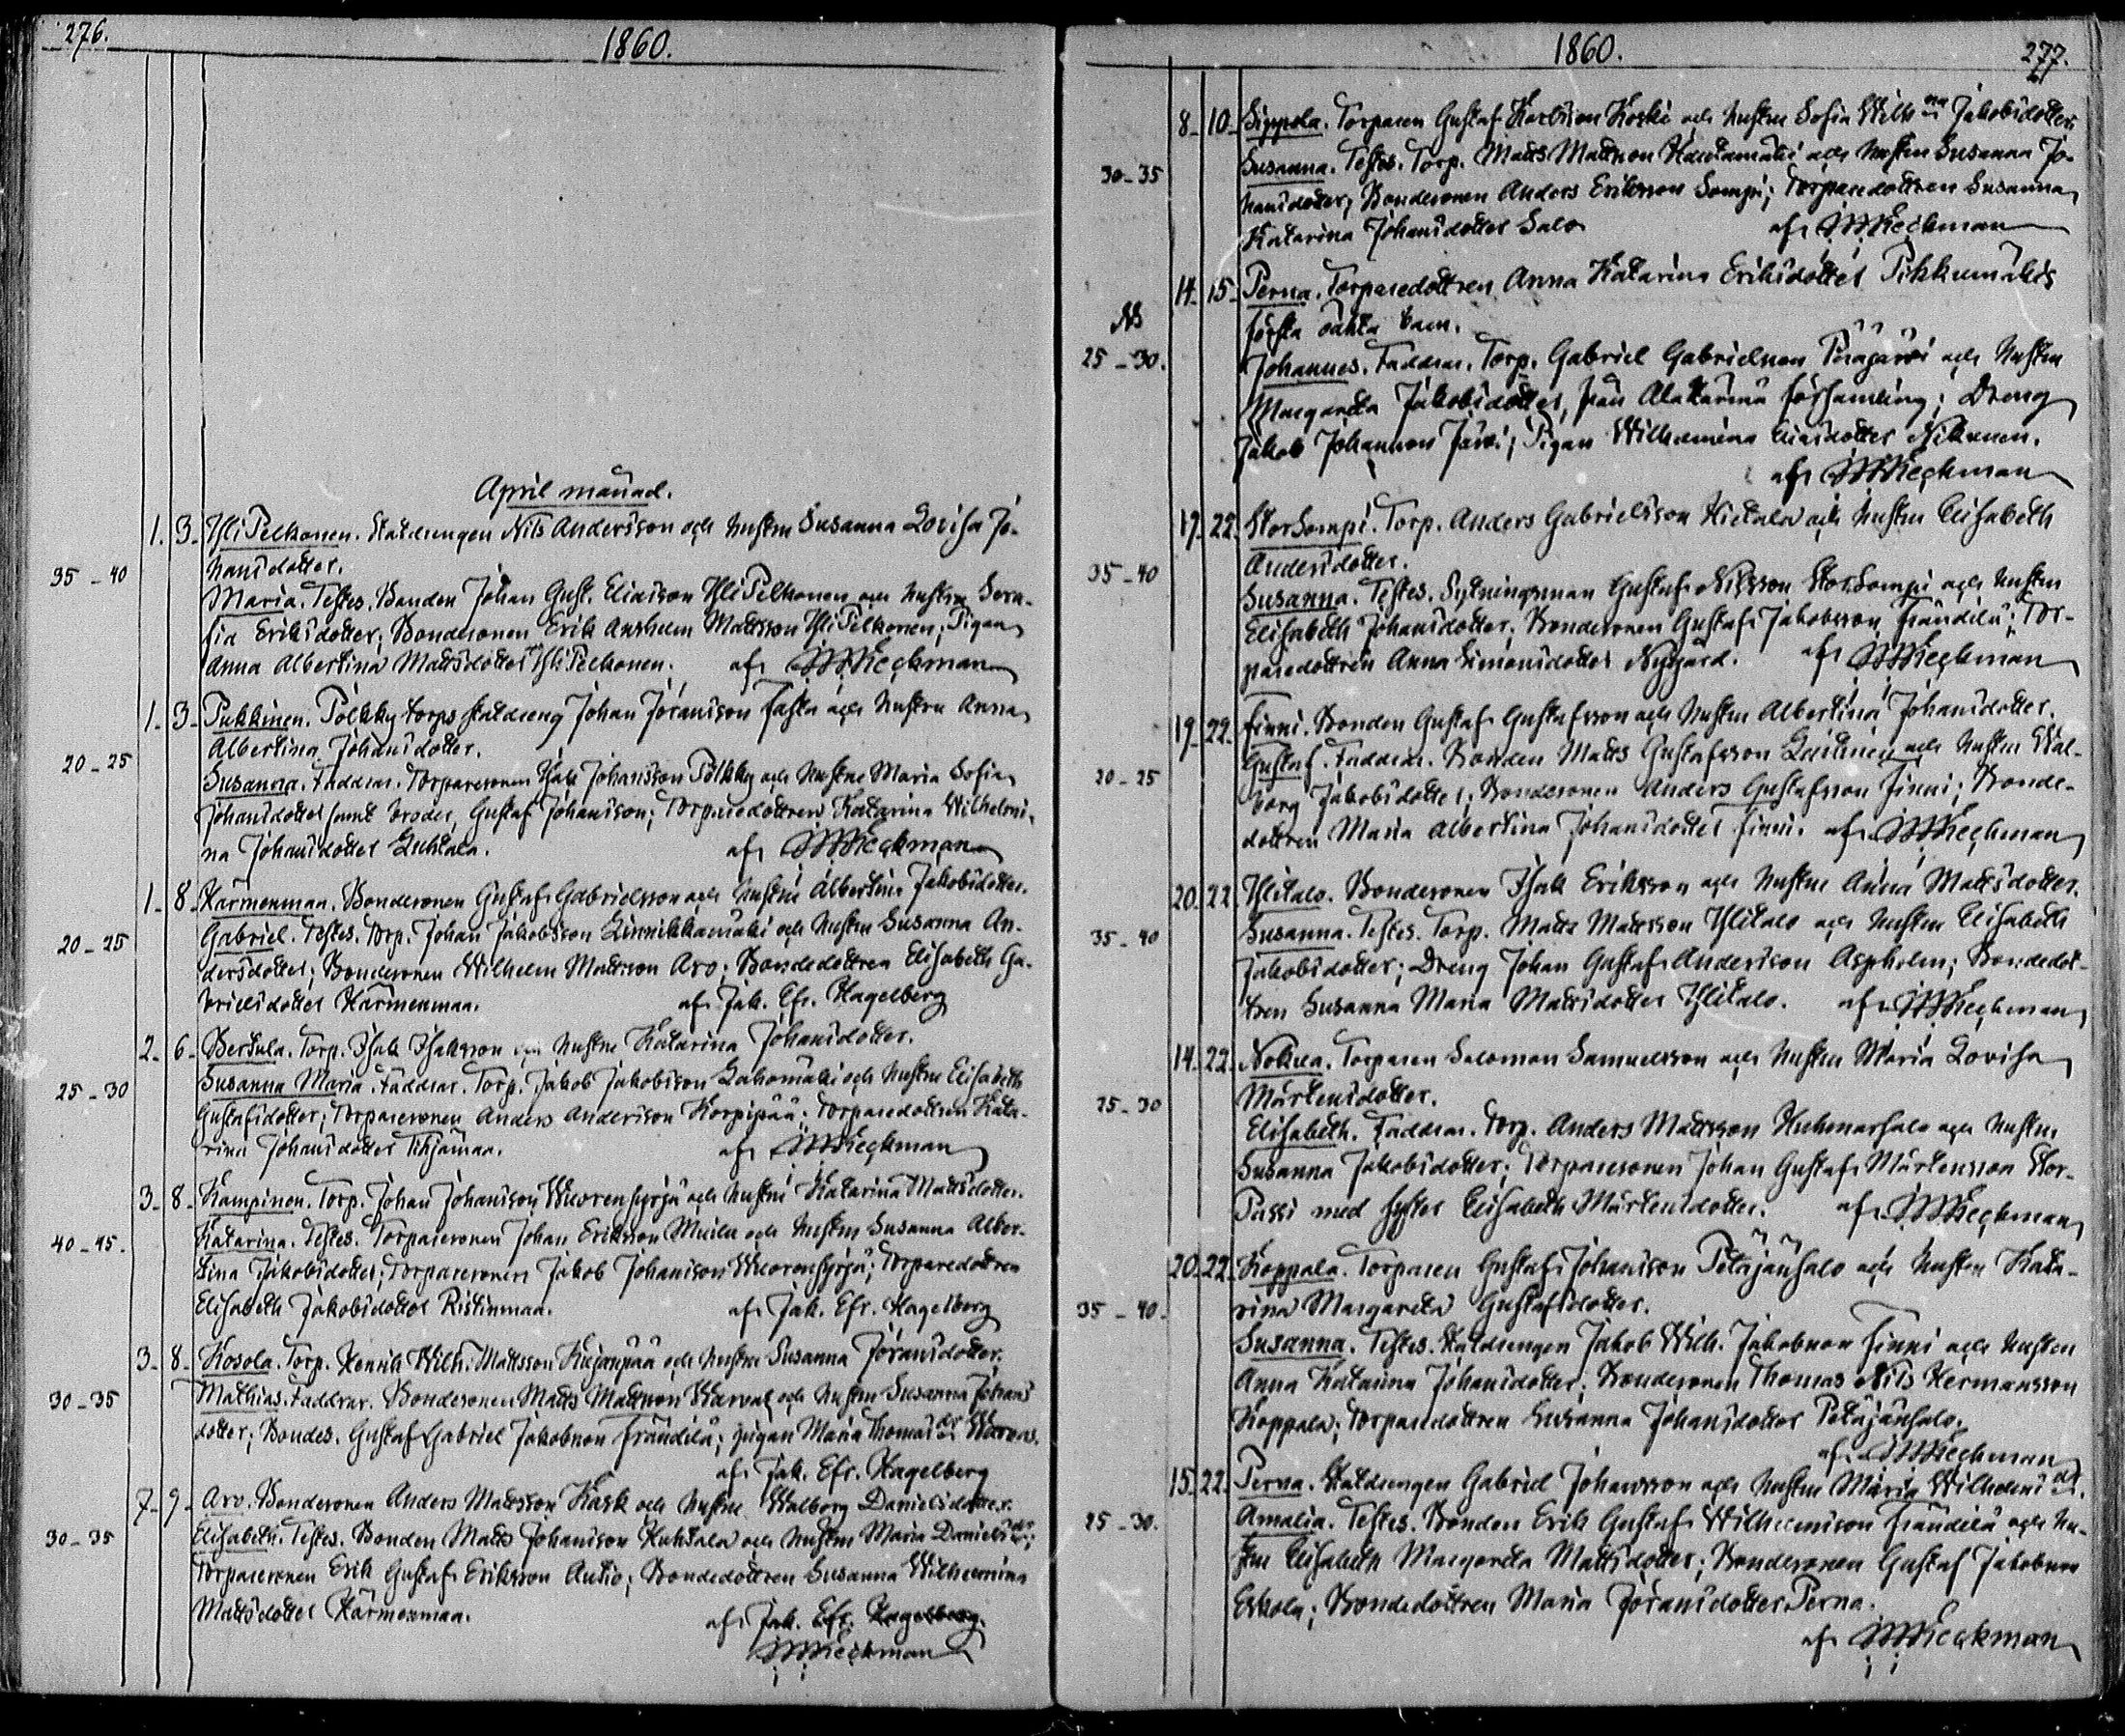 276.
1860.
April månad.
1. 3. Ylli Pelkonen. Statdrengen Nils Andersson och hustru Susanna Lovisa Jo-
hansdotter.
35-40
Maria. Testes. Bonden Johan Gust. Eliaison Ylli Pelkonen och hustru Sera-
fia Eriksdotter; Bondesonen Erik Anshelm Mattsson Ylli Pelkonen; Pigan
Anna Albertina Mattsdotter Ylli Pelkonen. af
1. 3. Pukkinen. Pölkky torps statdreng Johan Jöransson och hustru Anna
Albertina Johansdotter.
20-25
Susanna. Faddrar. Torparesonen Isak Johansson Pölkky och hustru Maria Sofia
Johansdotter samt broder, Gustaf Johansson; Torparedottren Katarina Wilhelmi-
na Johansdotter Luhtala. af
1. 8. Härmenmaa. Bondesonen Gustaf Gabrielsson och hustru Albertina Jakobsdotter.
20-25
Gabriel. Testes. Torp. Johan Jakobsson Linnikkamäki och hustru Susanna An-
dersdotter; Bondesonen Wilhelm Mattsson Aro; Bondedottren Elisabeth Ga-
brielsdotter Härmenmaa. af Jak. Efr. Hagelberg
2. 6. Bertula. Torp. Isak Isaksson och hustru Katarina Johansdotter.
25-30
Susanna Maria. Faddrar. Torp. Jakob Jakobsson Lahomäki och hustru Elisabeth
Gustafsdotter; Torparesonen Anders Andersson Korpipää; Torparedottren Kata-
rina Johansdotter af
3. 8. Kampinen. Torp. Johan Johansson Wuorensyrjä och hustru Katarina Mattsdotter.
40-45.
Katarina. Testes. Torparesonen Johan Eriksson och hustru Susanna Alber-
tina Jakobsdotter; Torparesonen Jakob Johansson Wuorensyrjä; Torparedottren
Elisabeth Jakobsdotter Ristinmaa. af Jak. Efr. Hagelberg
3. 8. Kosola. Torp. Henrik Wilh. Mattsson Kujanpää och hustru Susanna Jöransdotter.
30-35
Mathias. Faddrar. Bondesonen Matts Mattson och hustru Susanna Johans
dotter; Bondes. Gustaf Gabriel Jakobson Frändilä; pigan Maria Thomasdr
af Jak. Efr. Hagelberg
7. 9. Aro. Bondesonen Anders Mattsson Kask och hustru Walborg Danielsdotter.
30-35
Elisabeth. Testes. Bonden Matts Johansson Huhtala och hustru Maria Danielsdr;
Torparesonen Erik Gustaf Eriksson Autio; Bondedottren Susanna Wilhelmina
Mattsdotter Härmenmaa. af Jak. Efr. Hagelberg.
1860.
277.
8. 10. Sippola. Torparen Gustaf Karlsson Koski och hustru Sofia Wilhna Jakobsdotter.
30-35
Susanna. Testes. Torp. Matts Mattson Hautamäki och hustru Susanna Jo-
hansdotter; Bondesonen Anders Eriksson Sompi; Torparedottren Susanna
Katarina Johansdotter Salo af
14. 15. Perna. Torparedottren Anna Katarina Eriksdotter Pikkumäkis
första oäkta barn.
25-30.
Johannes. Faddrar. Torp. Gabriel Gabrielson och hustru
Margareta Jakobsdotter, från Alahärmä församling; Dreng
Jakob Johansson Järvi; Pigan Wilhelmina Eliasdotter
af
17. 22. Stor Sompi. Torp. Anders Gabrielsson Hietala och hustru Elisabeth
Andersdotter.
35-40
Susanna. Testes. Sytningsman Gustaf Nilsson Stor Sompi och hustru
Elisabeth Johansdotter; Bondesonen Gustaf Jakobsson Frändilä; Tor-
paredottren Anna Simonsdotter Nygård. af
19. 22. Finni. Bonden Gustaf Gustafsson och hustru Albertina Johansdotter.
20-25
Gustaf. Faddrar. Bonden Matts Gustafsson och hustru Wal-
borg Jakobsdotter; Bondesonen Anders Gustafsson Finni; Bonde-
dottren Maria Albertina Johansdotter Finni. af
20. 22. Ylitalo. Bondesonen Isak Eriksson och hustru Anna Mattsdotter.
35-40
Susanna. Testes. Torp. Matts Mattsson Ylitalo och hustru Elisabeth
Jakobsdotter; Dreng Johan Gustaf Andersson Aspholm; Bondedot-
tren Susanna Maria Mattsdotter Ylitalo. af
14. 22. Nokua. Torparen Salomon Samuelsson och hustru Maria Lovisa
Mårtensdotter.
25-30
Elisabeth. Faddrar. Torp. Anders Mattsson Huhmarsalo och hustru
Susanna Jakobsdotter; Torparesonen Johan Gustaf Mårtensson Stor-
Passi med syster Elisabeth Mårtensdotter. af
20. 22. Koppala. Torparen Gustaf Johansson Petäjänsalo och hustru Kata-
rina Margareta Gustafsdotter.
35-40.
Susanna. Testes. Statdrengen Jakob Wilh. Jakobson Finni och hustru
Anna Katarina Johansdotter; Bondesonen Thomas Nils Hermansson
Koppala; Torparedottren Susanna Johansdotter Petäjänsalo.
af
15. 22. Perna. Statdrengen Gabriel Johansson och hustru Maria Wilhelmsdr.
25-30.
Amalia. Testes. Bonden Erik Gustaf Wilhelmsson Frändilä och hu-
stru Elisabeth Margareta Mattsdotter; Bondesonen Gustaf Jakobson
Eskola; Bondedottren Maria Jöransdotter Perna.
af